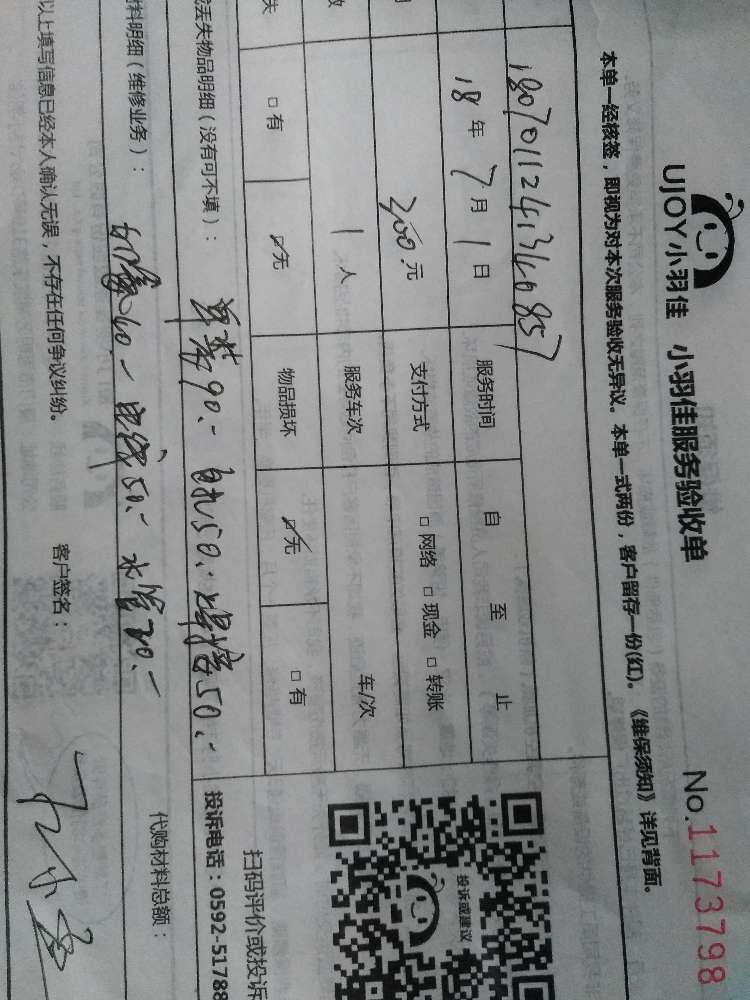 UJOY小羽佳 小羽佳服务验收单 No.1173798
本单一经核签，即视为对本次服务验收无异议。本单一式两份，客户留存一份(红)。《维保须知》详见背面。
18年7月1日 服务时间 自 至 止
300元 支付方式 □网络 □现金 □转账
1人 服务车次 车/次
失 □有 ☑无 物品损坏 ☑无 □有
丢失物品明细（没有可不填）：
90.- 50.- 50.-
扫码评价或投诉
投诉或建议
投诉电话：0592-51788
料明细（维修业务）：
50.- 水管20.-
代购材料总额：
以上填写信息已经本人确认无误，不存在任何争议纠纷。 客户签名：